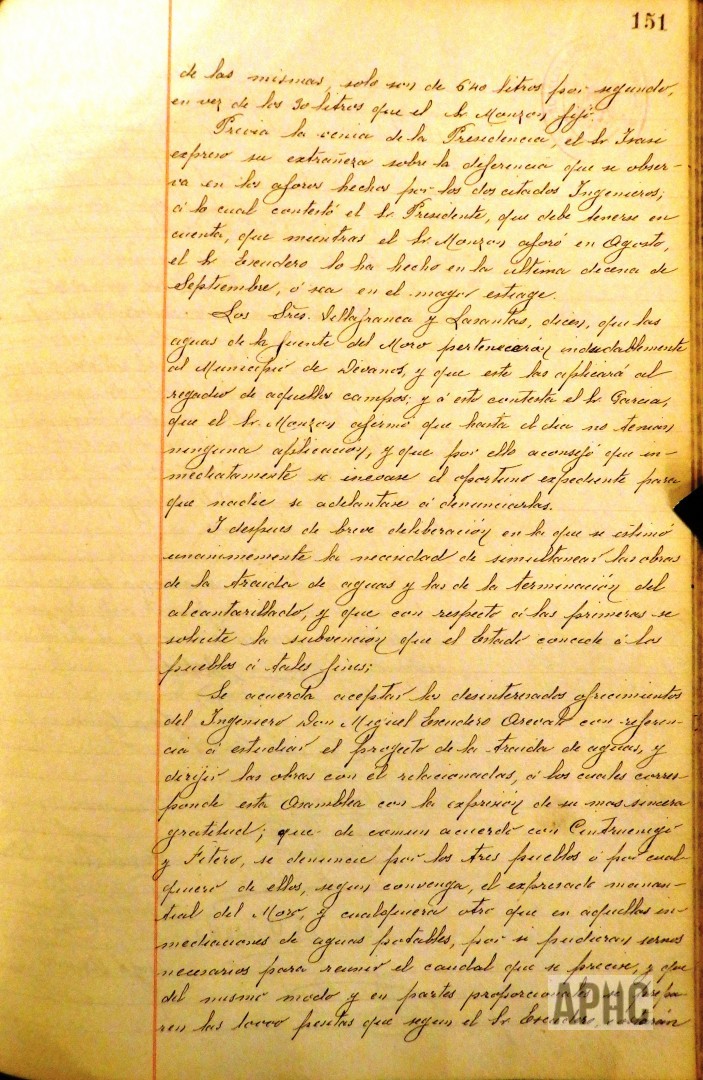 151
de las mismas, solo son de 6'40 litros por segundo,
en vez de los 30 litros que el Sr Monzon fijó.
Previa la venia de la Presidencia, el Sr Isasi
expreso su extrañeza sobre la diferencia que se obser-
va en los aforos hechos por los dos citados Ingenieros;
á lo cual contestó el Sr Presidente, que debe tenerse en
cuenta, que mientras el Sr Monzon aforó en Agosto,
el Sr Escudero lo ha hecho en la ultima decena de
Septiembre, ó sea en el mayor estiage.
Los Sres. Villafranca y Lasantas, dicen, que las
aguas de la fuente del Moro pertenecerán indudablemente
al Municipio de Dévanos, y que este las aplicará al
regadio de aquellos campos; y á esto contesta el Sr Garcia,
que el Sr Monzon afirmó que hasta el dia no tenian
ninguna aplicación, y que por ello aconsejó que in-
mediatamente se incoase el oportuno expediente para
que nadie se adelantase á denunciarlas.
I despues de breve deliberación en la que se estimó
unanimemente la necesidad de simultanear las obras
de la traida de aguas y las de la terminación del
alcantarillado, y que con respecto á las primeras se
solicite la subvención que el Estado concede á los
pueblos á tales fines;
Se acuerda aceptar los desinteresados ofrecimientos
del Ingeniero Don Miguel Escudero Arevalo con referen-
cia á estudiar el proyecto de la traida de aguas, y
dirijir las obras con el relacionadas, á los cuales corres
ponde esta Asamblea con la expresión de su mas sincera
gratitud; que de comun acuerdo con Cintruenigo
y Fitero, se denuncie por los tres pueblos ó por cual-
quiera de ellos, segun convenga, el expresado manan-
tial del Moro, y cualquiera otro que en aquellas in-
mediaciones de aguas potables, por si pudieran sernos
necesarios para reunir el caudal que se precise, y que
del mismo modo y en partes proporcionales se
ren las 10000 pesetas que segun el Sr Escudero,
APHC